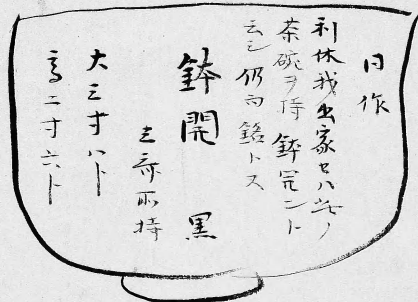 同作
利休我出家セハ此ノ
茶碗ヲ持 鉢完ント
云シ 仍而 銘トス
鉢開 黒
所持
大三寸八ト
高二寸六ト